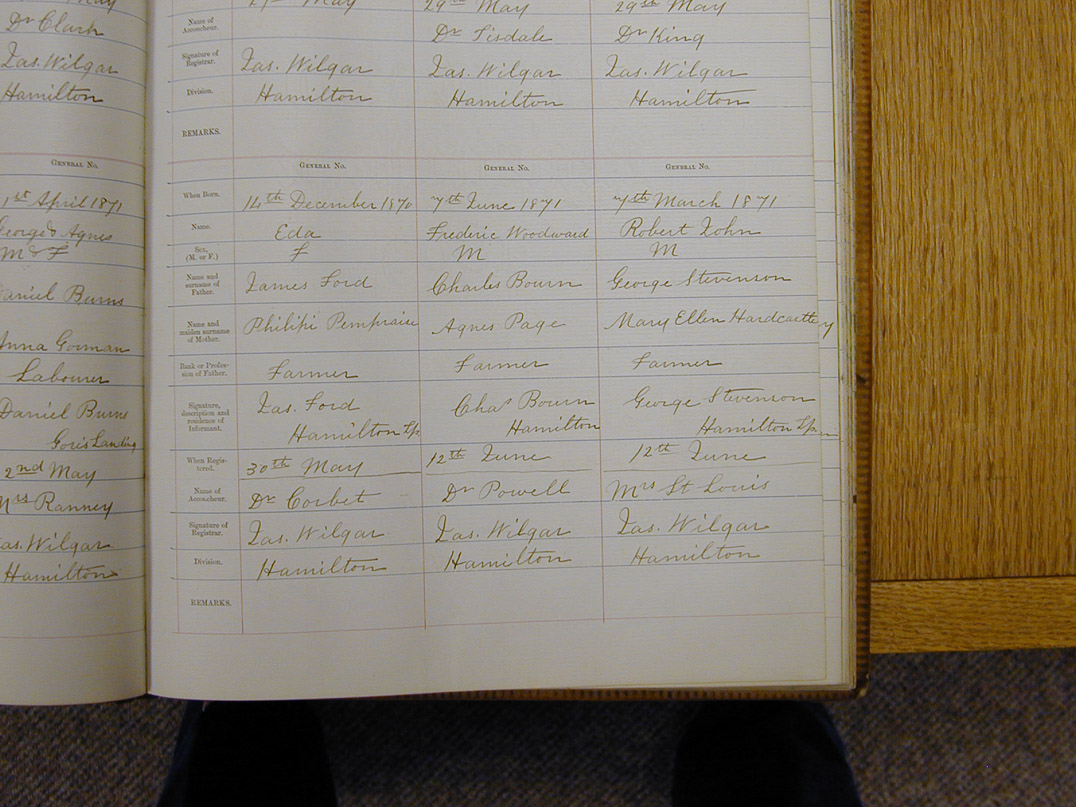 May
Dr Clark
Jas. Wilgar
Hamilton
GENERAL NO.
1st April 1871
George & Agnes
M & F
Daniel Burns
Anna Gorman
Labourer
Daniel Burns
Goris Landing
2nd May
Mrs Ranney
Jas. Wilgar
Hamilton
May 29th May 29th May
Name of Accoucheur. Dr Tisdale Dr King
Signature of Registrar. Jas. Wilgar Jas. Wilgar Jas. Wilgar
Division. Hamilton Hamilton Hamilton
REMARKS.
GENERAL NO. GENERAL NO. GENERAL NO.
When Born. 14th December 1870 7th June 1871 7th March 1871
Name. Eda Frederic Woodward Robert John
Sex, (M. or F.) F M M
Name and surname of Father. James Ford Charles Bourn George Stevenson
Name and maiden surname of Mother. Agnes Page Mary Ellen
Rank or Profession of Father. Farmer Farmer Farmer
Signature, description and residence of Informant. Jas. Ford Chas Bourn George Stevenson
Hamilton Tp. Hamilton Hamilton Tp
When Registered. 30th May 12th June 12th June
Name of Accoucheur. Dr Corbet Dr Powell Mrs St Louis
Signature of Registrar. Jas. Wilgar Jas. Wilgar Jas. Wilgar
Division. Hamilton Hamilton Hamilton
REMARKS.